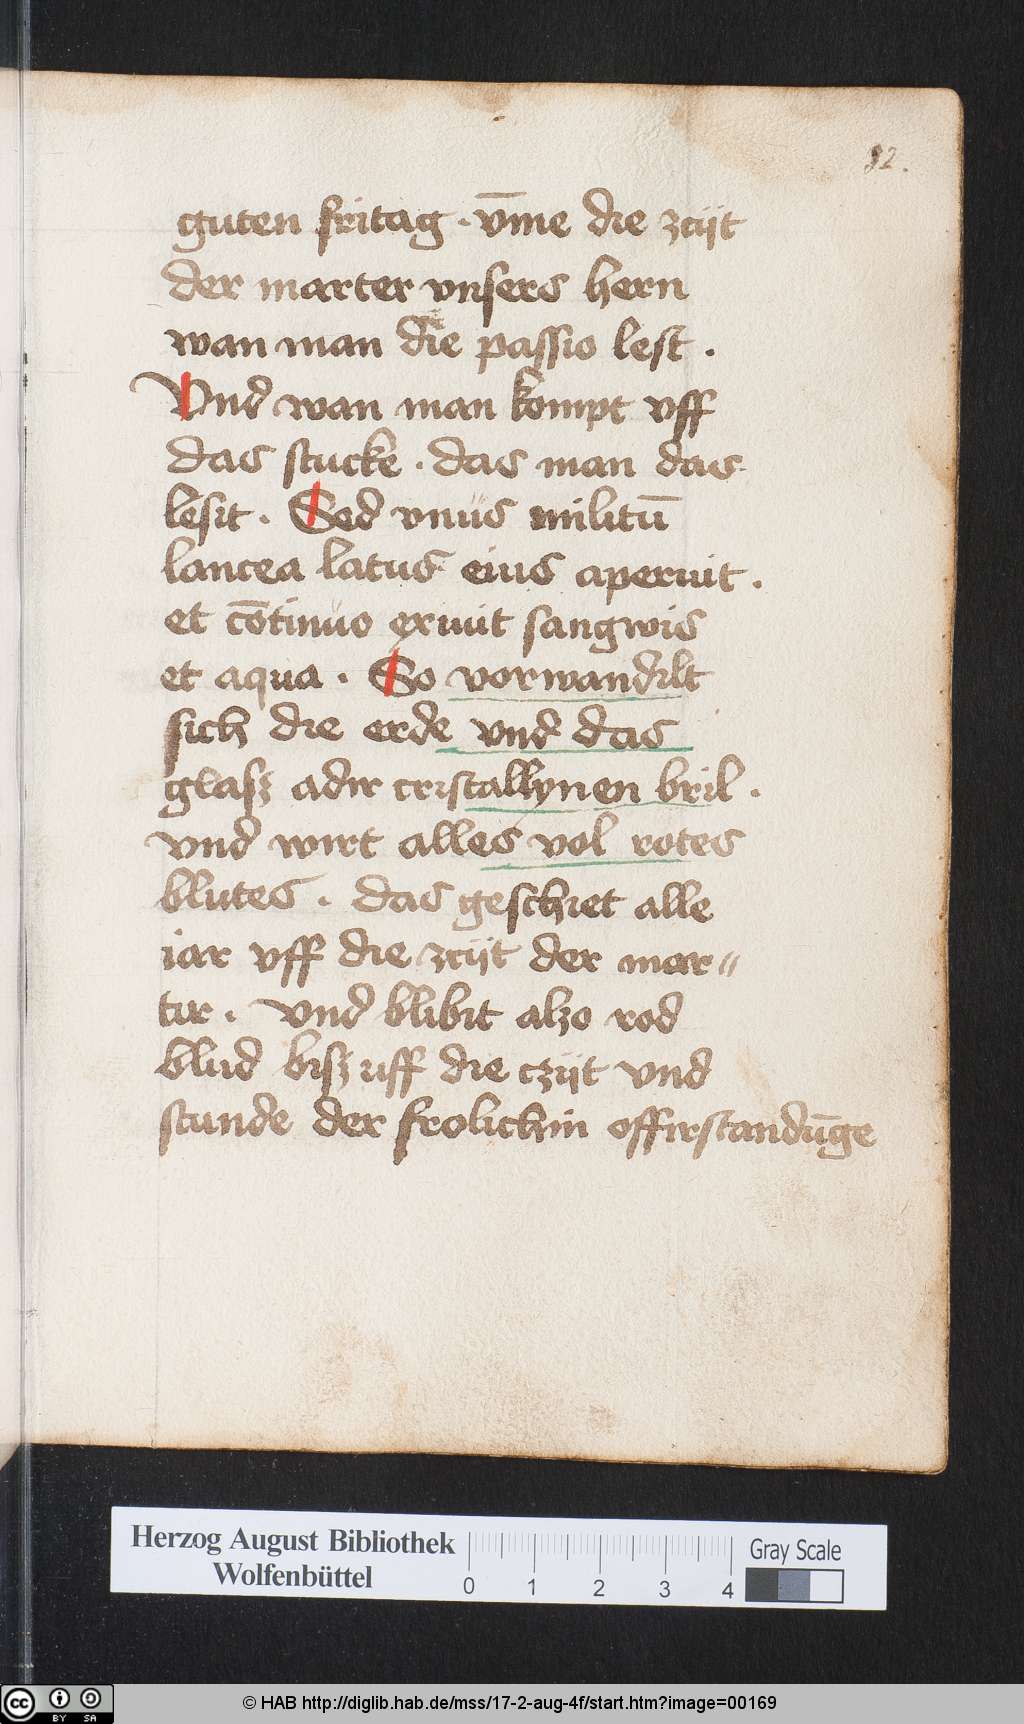 82.
guten fritag · vm̄e die zcijt
der marter vnsers hern
wan man die passio lest .
Vnd wan man kompt vff
das stucke · das man das
lesit · Sed vnus militū
lancea latus eius aperuit .
et cōtinuo exiuit sangwis
et aqua · So vorwandilt
sich die erde vnd das
glasz adir cristallynen bril .
vnd wirt alles vol rotes
blutes . das geschiet alle
iar vff die zcijt der mar〃
tir . vnd blibit alzo rod
blud bisz uff die czijt vnd
stunde der frolichin offirstandūge
Herzog August Bibliothek
Wolfenbüttel
0 1 2 3 4
Gray Scale
cc BY SA
© HAB http://diglib.hab.de/mss/17-2-aug-4f/start.htm?image=00169